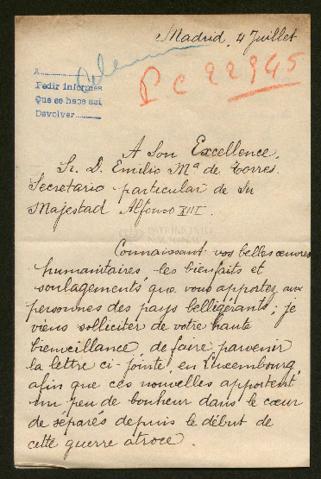 Madrid, 4 Juillet
A
Pedir informes
Que se hace así
Devolver
Pc 22945
A Son Excellence,
Sr. D. Emilio Mª de Torres.
Secretario particular de Su
Majestad Alfonso XIII.
Connaissant vos belles œuvres
humanitaires, les bienfaits et
soulagements que vous apportez aux
personnes des pays belligérants; je
viens solliciter de votre haute
bienveillance de faire parvenir
la lettre ci-jointe, en Luxembourg,
afin que ces nouvelles apportent
un peu de bonheur dans le cœur
de séparés depuis le début de
cette guerre atroce.